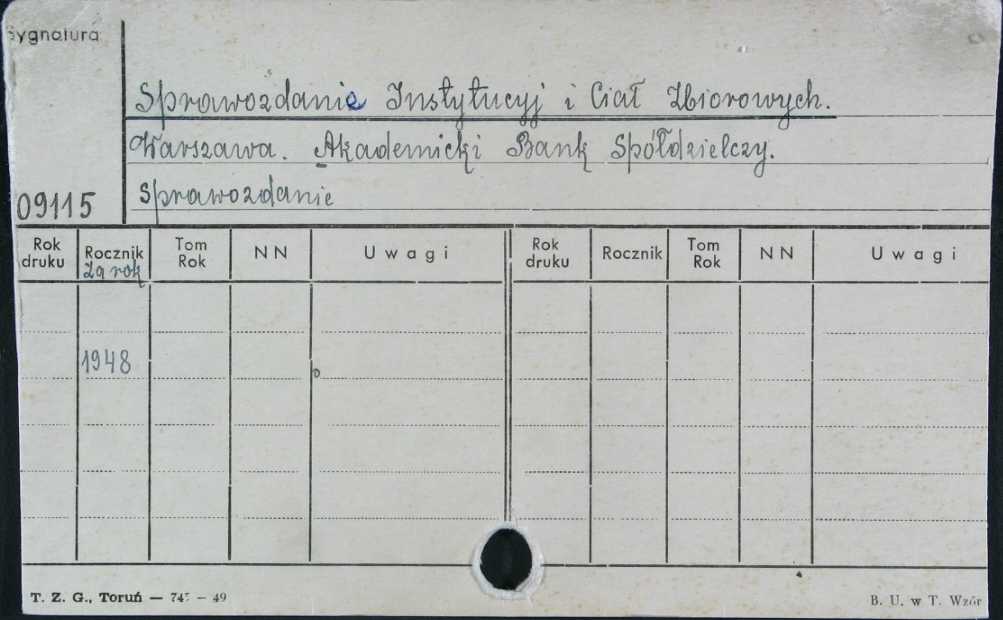 Sygnatura
Sprawozdanie Instytucyj i Ciał Zbiorowych.
Warszawa. Akademicki Bank Spółdzielczy.
09115 Sprawozdanie
Rok druku Rocznik Tom Rok N N Uwagi Rok druku Rocznik Tom Rok N N Uwagi
za rok
1948
T. Z. G., Toruń — 745 — 49 B. U. w T. Wzór